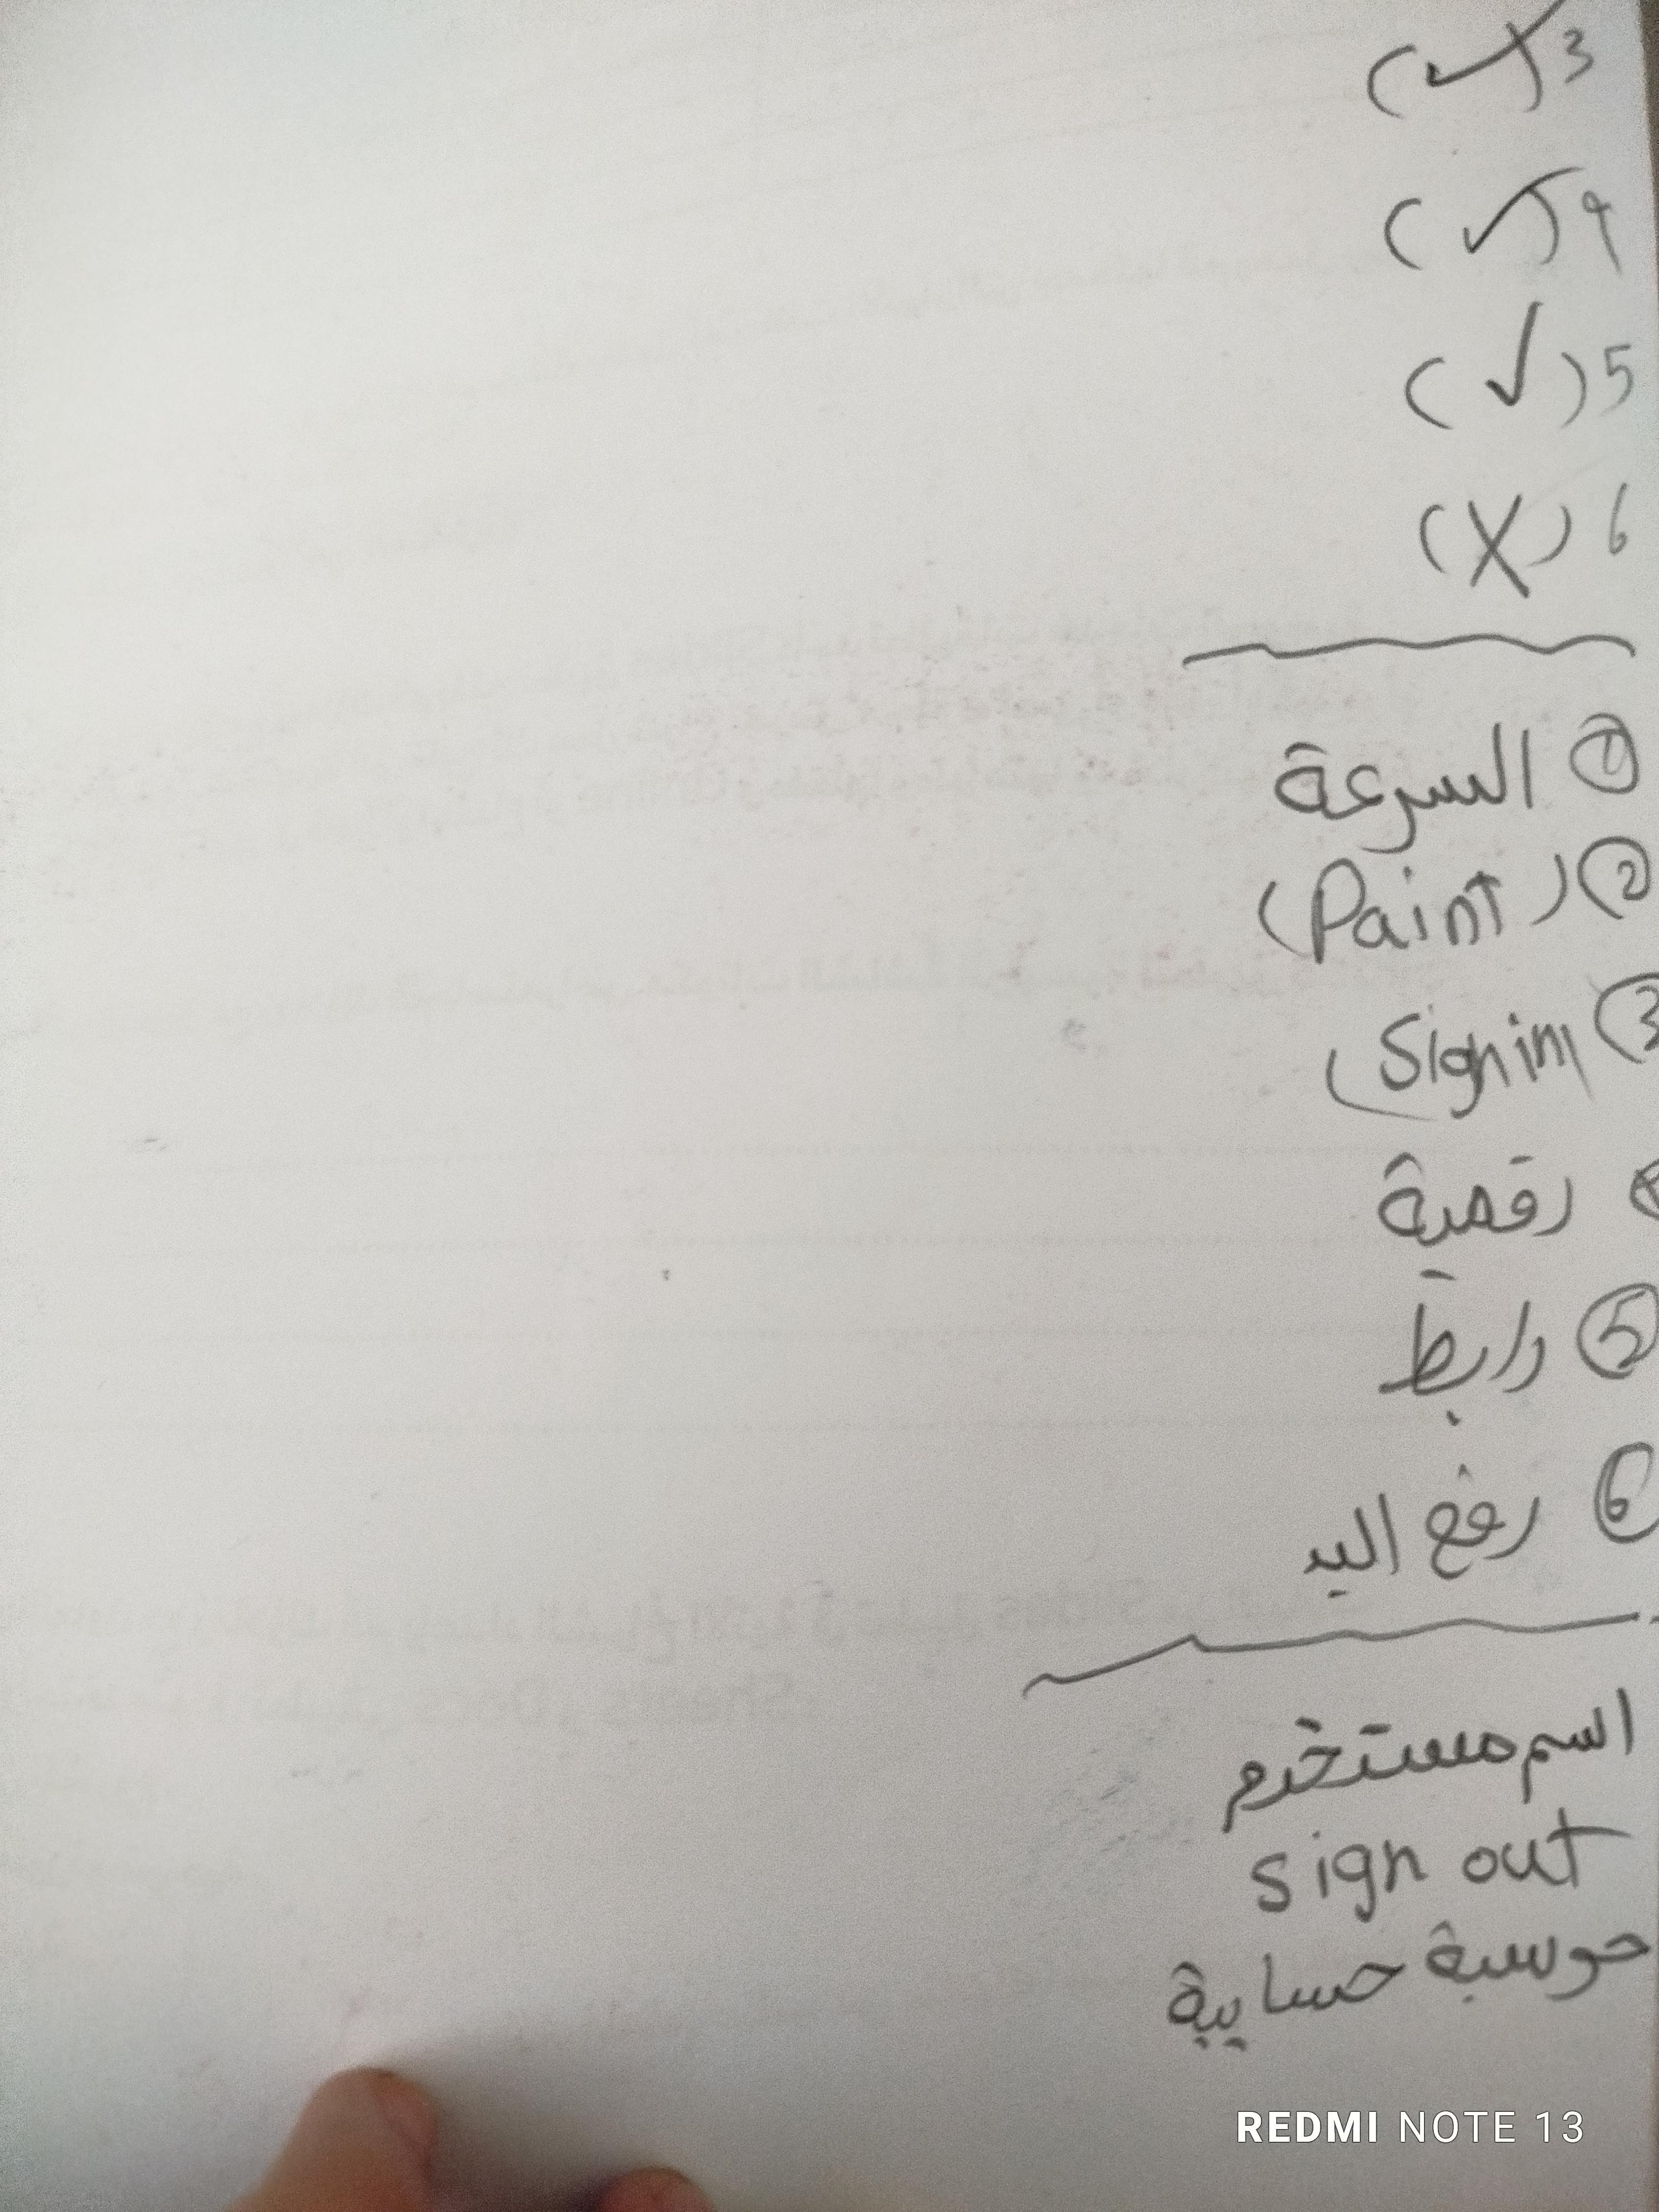 3 (✓)
4 (✓)
5 (✓)
6 (X)
① السرعة
② (Paint)
③ (Sign in)
④ رقمية
⑤ رابط
⑥ رفع اليد
اسم مستخدم
sign out
حوسبة حسابية
REDMI NOTE 13